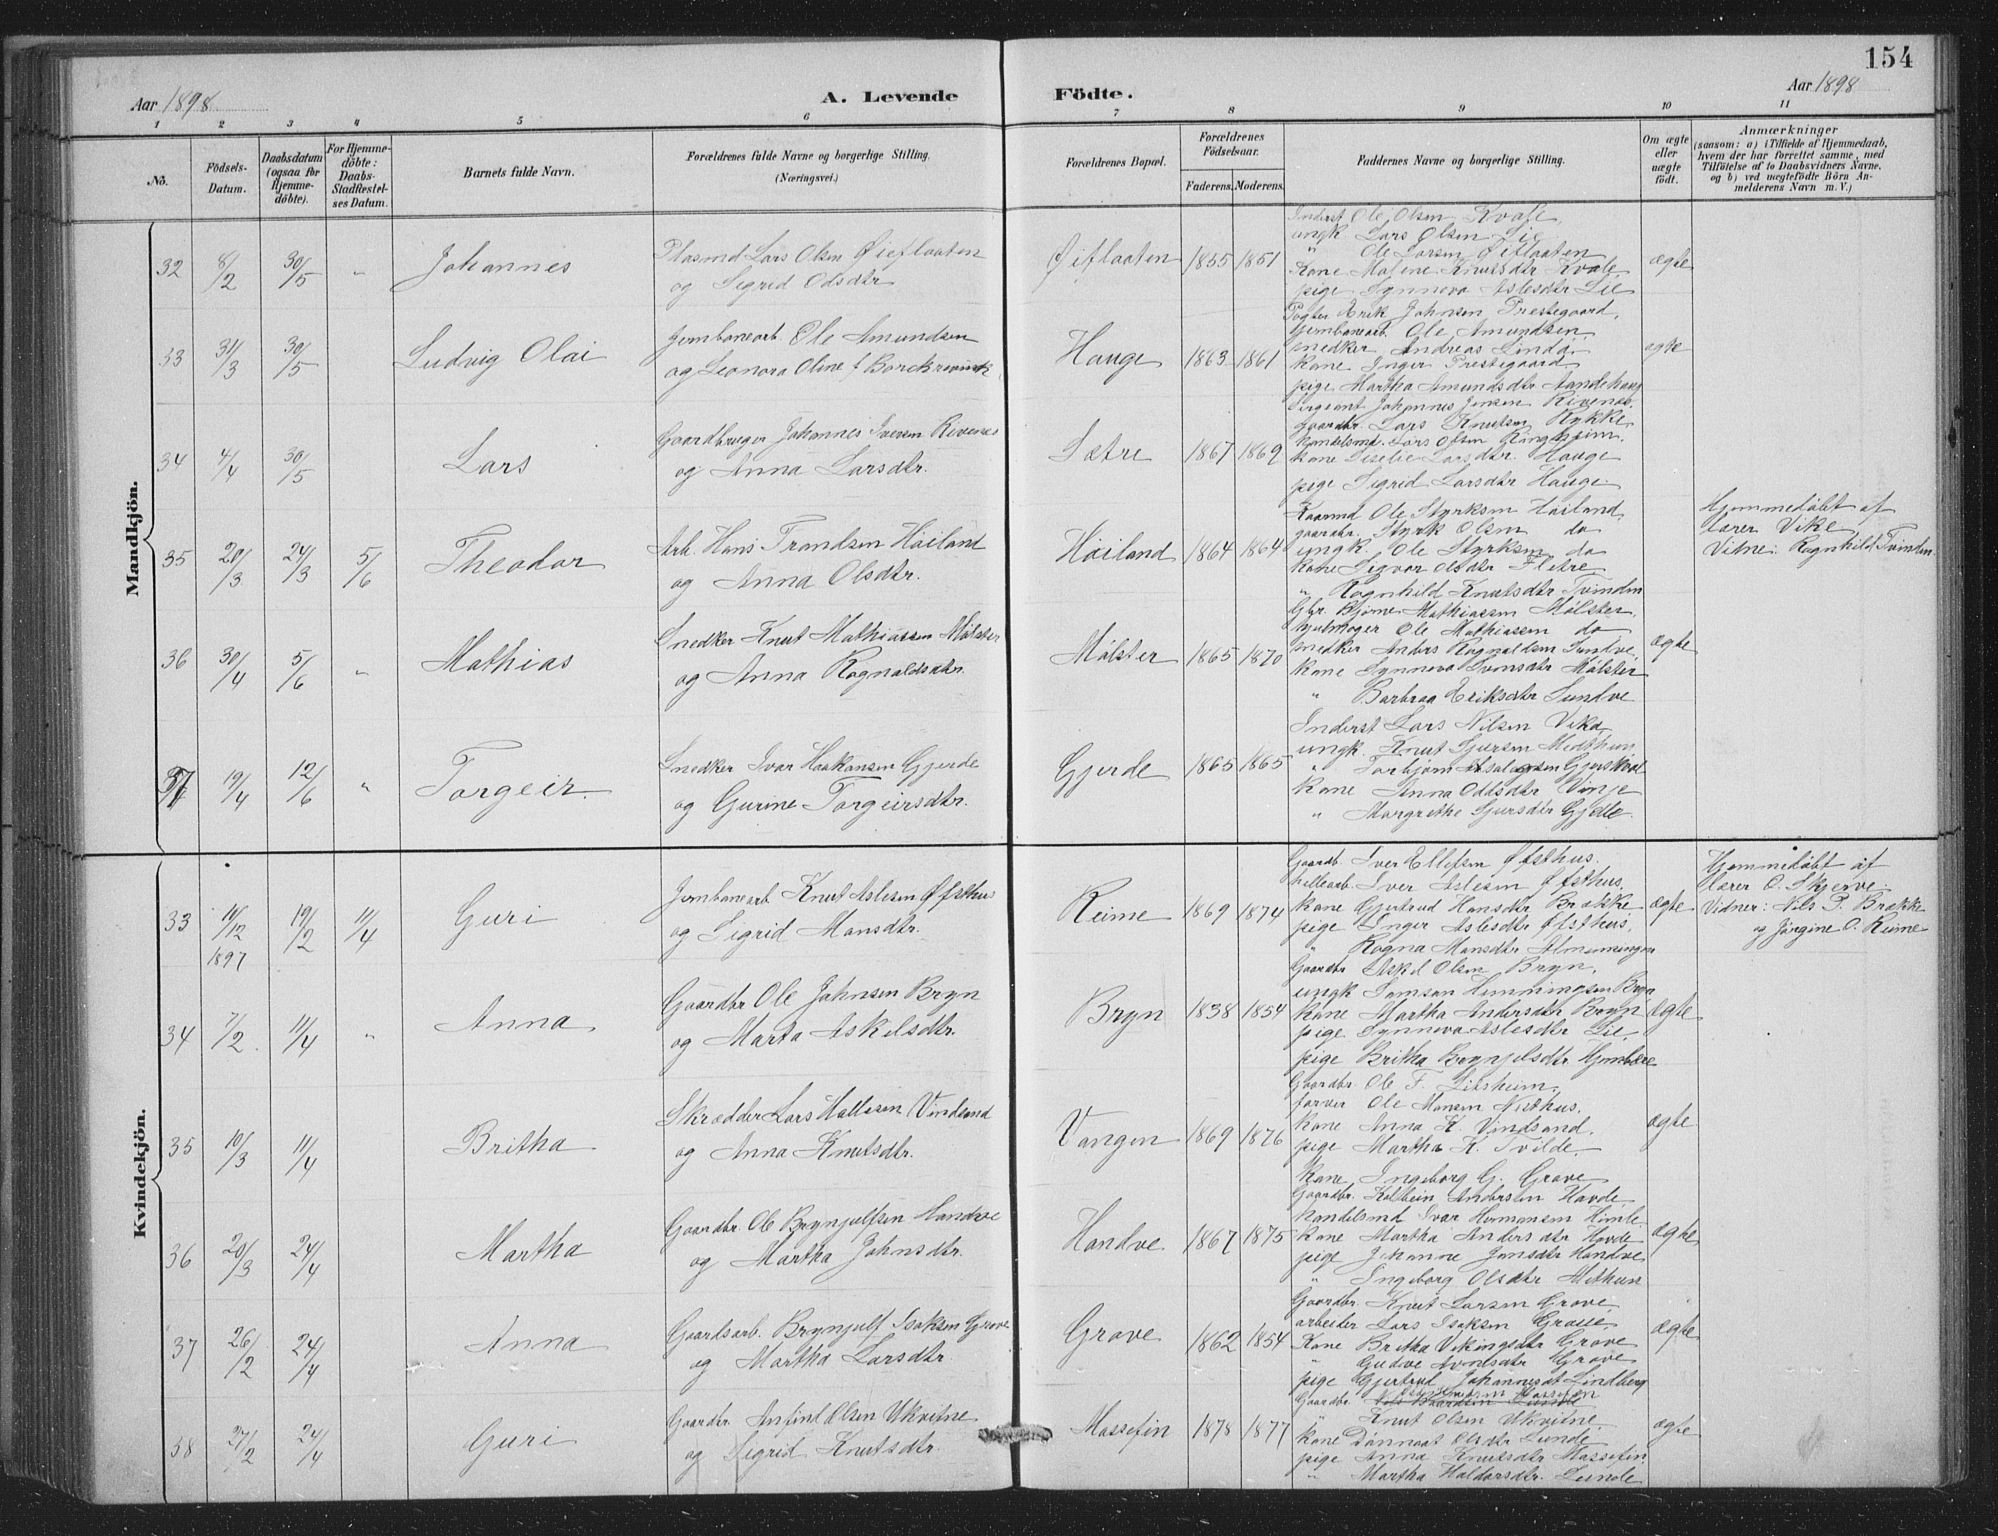 154
Aar 1898
A. Levende
Födte.
Aar 1898
1 2 3 4 5 6 7 8 9 10 11
No.
Födsels-
Datum.
Daabsdatum
(ogsaa for
Hjemme-
döbte).
For Hjemme-
döbte:
Daabs-
Stadfæstel-
ses Datum.
Barnets fulde Navn.
Forældrenes fulde Navne og borgerlige Stilling.
(Næringsvei.)
Forældrenes Bopæl.
Forældrenes
Födselsaar.
Faderens. Moderens.
Faddernes Navne og borgerlige Stilling.
Om ægte
eller
uægte
födt.
Anmærkninger
(saasom: a) i Tilfælde af Hjemmedaab,
hvem der har forrettet samme, med
Tilföielse af to Daabsvidners Navne,
og b) ved uægtefödte Börn An-
melderens Navn m. V.)
Mandkjön.
32 8/2 30/5 " Johannes
Plasmd Lars Olsen Øieflaaten
og Sigrid Odsdtr
Øiflaaten 1855 1851
Inderst Ole Olsen Kvale
ungk. Lars Olsen Lie
" Ole Larsen Øiflaaten
Kone Malene Knutsdtr Kvale
pige Synneva Aslesdtr Lie
ægte
33 31/3 30/5 Ludvig Olai
Jernbanearb. Ole Amundsen
og Leonora Oline f.
Hauge 1863 1861
Erik Johnsen Prestegaard,
Jernbanearb. Ole Amundsen
snedker Andreas Linda
kone Inger Prestegaard
pige Martha Amundsdtr
ægte
34 4/4 30/5 Lars
Gaardbruger Johannes Iversen Rivenes
og Anna Larsdtr.
Sætre 1867 1869
Sergeant Johannes Jensen Rivenes.
gaardbr. Lars Knutsen Rykke
handelsmd. Lars Olsen Ringheim.
kone Larsdtr. Hauge
pige Sigrid Larsdtr Hauge.
35 20/3 24/3 5/6 Theodor
Arb. Hans Trondsen Höiland
og Anna Olsdtr.
Höiland 1864 1864
Kaarmd Ole Styrksen Höiland
gaardbr. Styrk Olsen do
ungk. Ole Styrksen do
kone Sigvor Olsdtr Fletre
" Ragnhild Knutsdtr Tvinden
Hjemmedöbt af
lærer Vike
Vidne: Ragnhild Tvinden
36 30/4 5/6 " Mathias
Snedker Knut Mathiassen Mölster
og Anna Ragnaldsdtr.
Mölster 1865 1870
Gbr. Bjørne Mathiassen Mölster.
hjulmager Ole Mathiassen do
snedker Anders Ragnaldsen Sundve
kone Synneva Svensdtr Mölster
" Barbraa Eriksdtr Sundve
ægte
37 19/4 12/6 " Torgeir.
Snedker Ivar Haakonsen Gjerde
og Gurine Torgeirsdtr.
Gjerde 1865 1865
Inderst Lars Nilsen Vika
ungk. Knut Sjursen Midthun
" Torbjørn
kone Anna Oddsdtr Vinje
" Margrethe Sjursdtr Gjelle.
Kvindekjön.
33 10/12 1897 19/2 11/4 Guri
Jernbanearb Knut Aslesen Øfsthus
og Sigrid Monsdtr.
Reime 1869 1874
Gaardb. Iver Ellefsen Øfsthus.
Iver Aslesen Øfsthus,
kone Gjertrud Hansdtr Brække
pige Inger Aslesdtr Øfsthus,
" Ragna Monsdtr
ægte
Hjemmedöbt af
lærer O. Skjerve
Vidner: Nils P. Brække
og Jörgine O. Reime
34 7/2 11/4 " Anna
Gaardbr Ole Johnsen Bryn
og Marta Askelsdtr.
Bryn 1838 1854
Gaardbr Askel Olsen Bryn,
ungk Samson Hemmingsen Bryn
kone Martha Andersdtr Bryn
pige Synneva Aslesdtr Lie,
pige Britha Brynjelsdtr
ægte
35 10/3 11/4 Britha
Skrædder Lars Hallesen Vindsand
og Anna Knutsdtr.
Vangen 1869 1876
Gaardbr. Ole F. Litsheim,
farver Ole Monsen Nesthus.
kone Anna K. Vindsand.
pige Martha K. Tvilde.
kone Ingeborg G. Grove
ægte
36 20/3 24/4 Martha
Gaardbr. Ole Brynjulfsen Handve
og Martha Johnsdtr.
Handve 1867 1875
Gaardbr. Kolbein Andersen Havde
handelsmd Ivar Hermansen Himle.
kone Martha Andersdtr Havde
pige Johanna Jonsdtr Handve
" Ingeborg Olsdtr Mithun
ægte
37 26/2 24/4 Anna
Gaardsarb. Brynjulf Isaksen Grove
og Martha Larsdtr.
Grove 1862 1854
Gaardbr. Knut Larsen Grove
arbeider Lars Isaksen Grove
kone Britha Vikingsdtr Grove
" Gudve Arnesdtr Grove
pige Gjertrud Johannesdt Lindberg
ægte
38 27/2 24/4 Guri
Gaardbr. Anfind Olsen Ukvitne
og Sigrid Knutsdtr.
Massefin 1878 1877
Gaardbr.
" Knut Olsen Ukvitne.
kone Olsdtr Lunde
pige Anna Knutsdtr Massefin
" Martha Haldorsdtr. Lunde
ægte